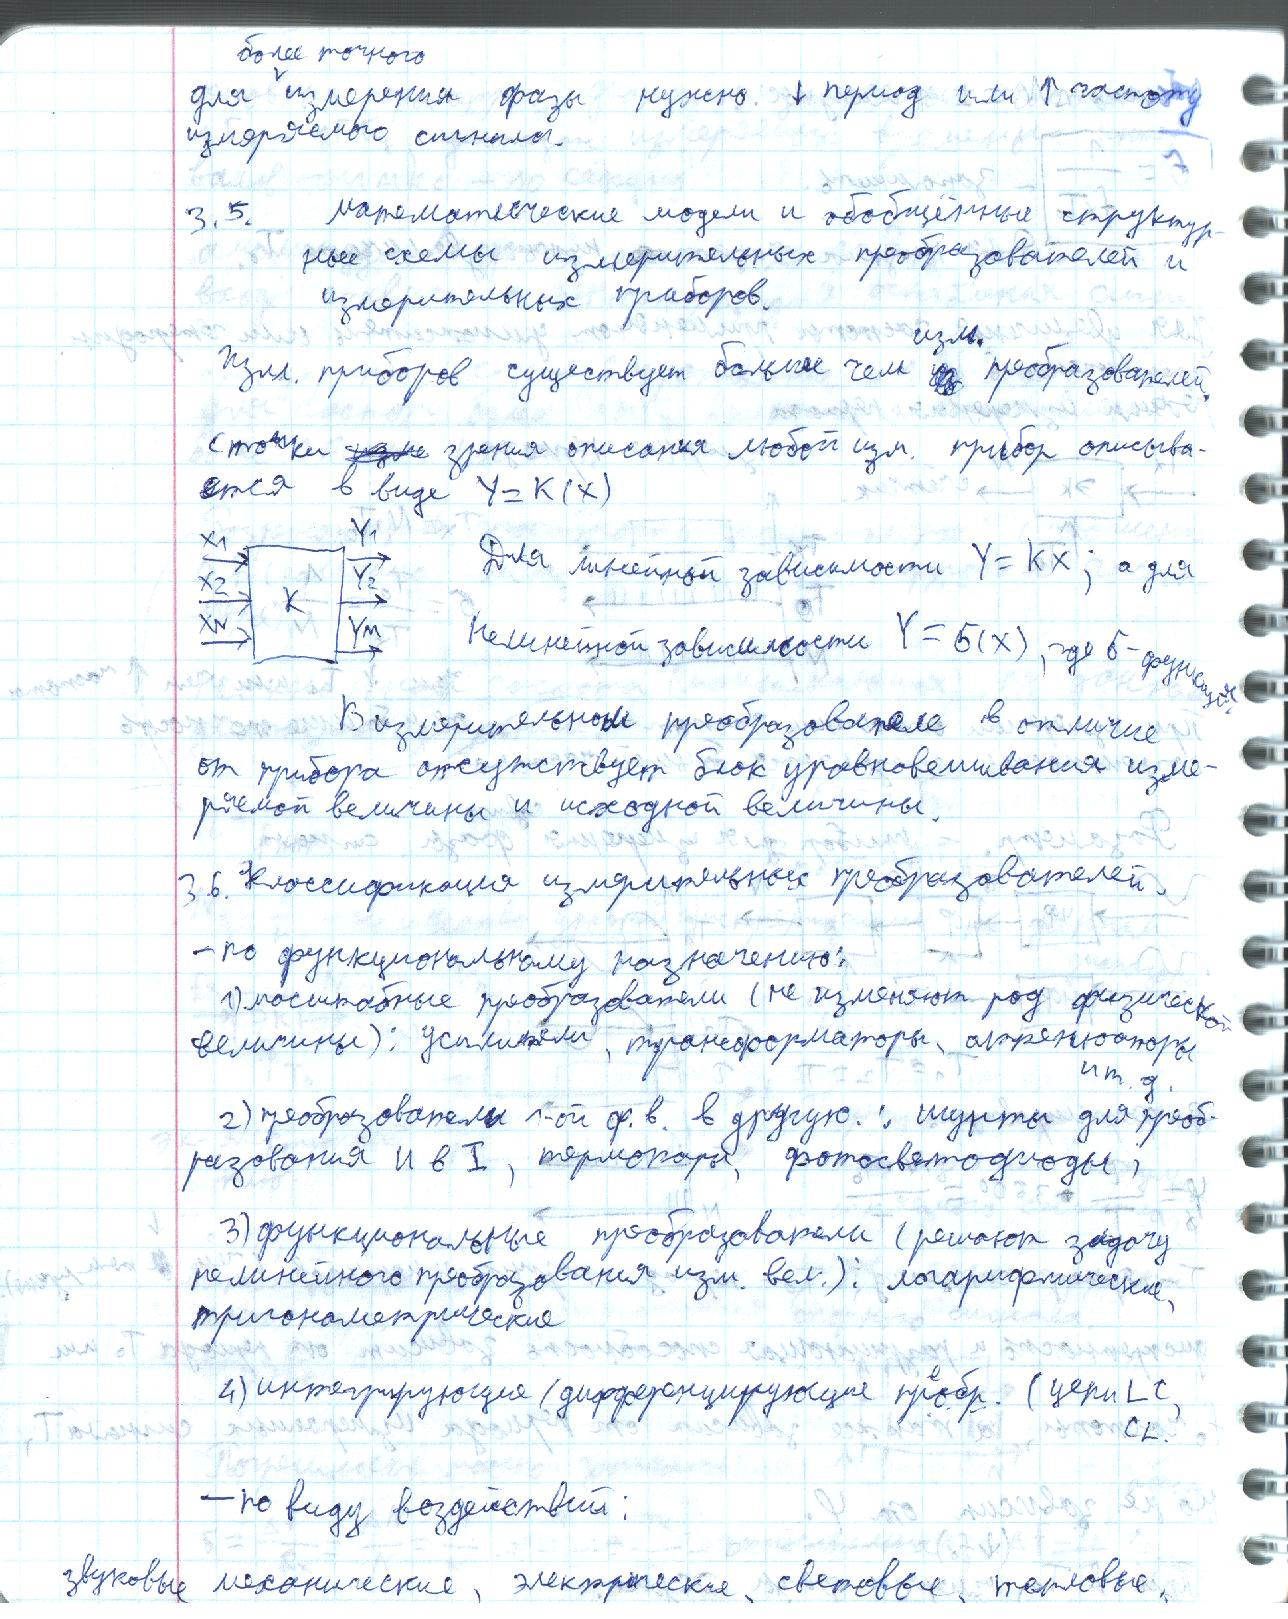 более точного
для измерения фазы нужно ↓ период или ↑ частоту
измеряемого сигнала.
3.5. Математические модели и обобщённые структур-
ные схемы измерительных преобразователей и
измерительных приборов.
изм.
Изм. приборов существует больше чем преобразователей.
С точки зрения описания любой изм. прибор описыва-
ется в виде Y=K(X)
X1 Y1
X2 K Y2
XN YM
Для линейной зависимости Y=KX; а для
нелинейной зависимости Y=б(X), где б-функция.
В измерительном преобразователе в отличие
от прибора отсутствует блок уравновешивания изме-
ряемой величины и исходной величины.
3.6. Классификация измерительных преобразователей.
– по функциональному назначению:
1) масштабные преобразователи (не изменяют род физической
величины): усилители, трансформаторы, аттенюаторы
и т. д.
2) преобразователи 1-ой ф.в. в другую.: шунты для преоб-
разования U в I, термопары, фотосветодиоды;
3) функциональные преобразователи (решают задачу
нелинейного преобразования изм. вел.): логарифмические,
тригонометрические
4) интегрирующие (дифференцирующие преобр. (цепи LC,
CL.
– по виду воздействий:
звуковые механические, электрические, световые, тепловые,